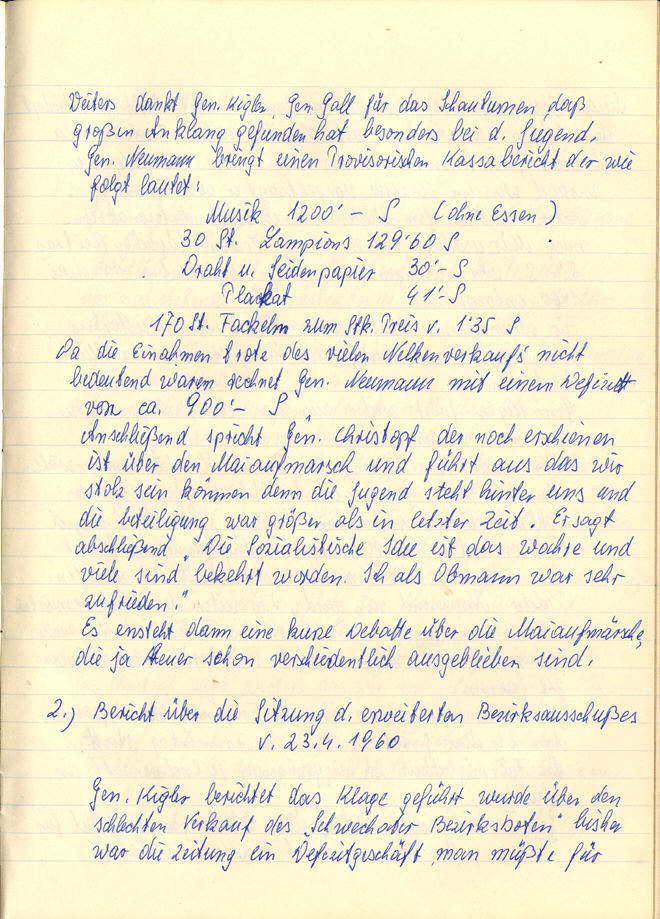 Weiters dankt Gen. Kigler, Gen. Gall für das Schauturnen, daß
großen Anklang gefunden hat besonders bei d. Jugend.
Gen. Neumann bringt einen Provisorischen Kassabericht der wie
folgt lautet:
Musik 1200'- S (ohne Essen)
30 St. Lampions 129'60 S
Draht u. Seidenpapier 30'- S
Plackat 41'- S
170 St. Fackeln zum Stk. Preis v. 1'35 S
Da die Einahmen trotz des vielen Nelkenverkaufs nicht
bedeutend waren rechnet Gen. Neumann mit einem Defizitt
von ca. 900'- S
Anschließend spricht Gen. Christopf der noch erschienen
ist über den Maiaufmarsch und führt aus das wir
stolz sein können denn die Jugend steht hinter uns und
die beteiligung war größer als in letzter Zeit. Er sagt
abschließend „Die Sozialistische Idee ist das wahre und
viele sind bekehrt worden. Ich als Obmann war sehr
zufrieden."
Es ensteht dann eine kurze Debatte über die Maiaufmärsche,
die ja heuer schon verschiedentlich ausgeblieben sind.
2.) Bericht über die Sitzung d. erweiterten Bezirksausschußes
v. 23.4.1960
Gen. Kigler berichtet das Klage geführt wurde über den
schlechten Verkauf des „Schwechater Bezirksboten" bisher
war die Zeitung ein Defizitgeschäft, man müßte für